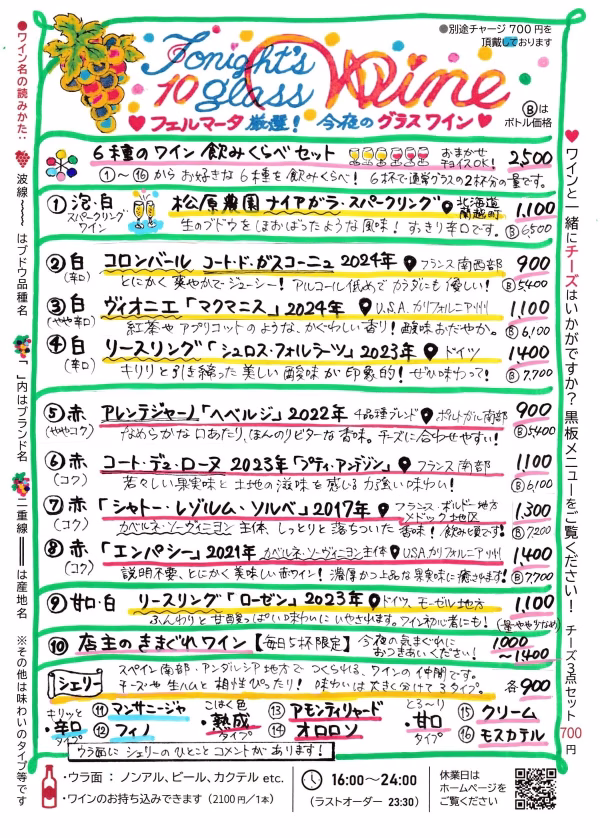 ●別途チャージ700円を
頂戴しております
Tonight's
10 glass
Wine
♥フェルマータ厳選! 今夜のグラスワイン♥
Ⓑは
ボトル価格
6種のワイン飲みくらべセット おまかせ
チョイスOK! 2,500
①〜⑯からお好きな6種を飲みくらべ! 6杯で通常グラスの2杯分の量です。
①泡・白 松原農園 ナイアガラ・スパークリング 北海道
蘭越町 1,100
スパークリング
ワイン 生のブドウをほおばったような風味! すっきり辛口です。 Ⓑ6,500
②白 コロンバール コート・ド・ガスコーニュ 2024年 フランス南西部 900
(辛口) とにかく爽やかでジューシー! アルコール低めでカラダにも優しい! Ⓑ5400
③白 ヴィオニエ「マクマニス」2024年 U.S.A.カリフォルニア州 1,100
(やや辛口) 紅茶やアプリコットのような、かぐわしい香り! 酸味おだやか。 Ⓑ6,100
④白 リースリング「シュロス・フォルラーツ」2023年 ドイツ 1,400
(辛口) キリリと引き締った美しい酸味が印象的! ぜひ味わって! Ⓑ7,700
⑤赤 アレンテジャーノ「ヘベルジ」2022年 4品種ブレンド ポルトガル南部 900
(ややコク) なめらかな口あたり、ほんのりビターな香味。チーズに合わせやすい! Ⓑ5400
⑥赤 コート・デュ・ローヌ 2023年「プティ・アンデジン」 フランス南部 1,100
(コク) 若々しい果実味と土地の滋味を感じる力強い味わい! Ⓑ6,100
⑦赤 「シャトー・レゾルム・ソルベ」2017年 フランス・ボルドー地方
メドック地区 1,300
(コク) カベルネ・ソーヴィニヨン主体、しっとりと落ちついた香味! 飲み頃です! Ⓑ7,200
⑧赤 「エンパシー」2021年 カベルネ・ソーヴィニヨン主体 U.S.A.カリフォルニア州 1,400
(コク) 説明不要、とにかく美味しい赤ワイン! 濃厚かつ上品な果実味に癒やされます! Ⓑ7,700
⑨甘口・白 リースリング「ローゼン」2023年 ドイツ、モーゼル地方 1,100
ふんわりと甘酸っぱい味わいにいやされます。ワイン初心者にも! (量やや少なめ)
⑩ 店主のきまぐれワイン【毎日5杯限定】 今夜の気まぐれに
おつきあいください! 1000
〜1400
シェリー
スペイン南部・アンダルシア地方でつくられる、ワインの仲間です。
チーズや生ハムと相性ぴったり! 味わいは大きく分けて3タイプ。 各900
キリッと
・辛口
タイプ ⑪マンサニージャ
⑫フィノ
こはく色
・熟成
タイプ ⑬アモンティリャード
⑭オロロソ
とろ〜り
・甘口
タイプ ⑮クリーム
⑯モスカテル
ウラ面にシェリーのひとことコメントがあります!
・ウラ面: ノンアル、ビール、カクテル etc.
・ワインのお持ち込みできます(2100円/1本)
16:00〜24:00
(ラストオーダー 23:30)
休業日は
ホームページを
ご覧ください
●ワイン名の読みかた: 波線 はブドウ品種名 「 」内はブランド名 二重線 は産地名 ※その他は味わいのタイプ等です
♥ワインと一緒にチーズはいかがですか? 黒板メニューをご覧ください! チーズ3点セット 700円